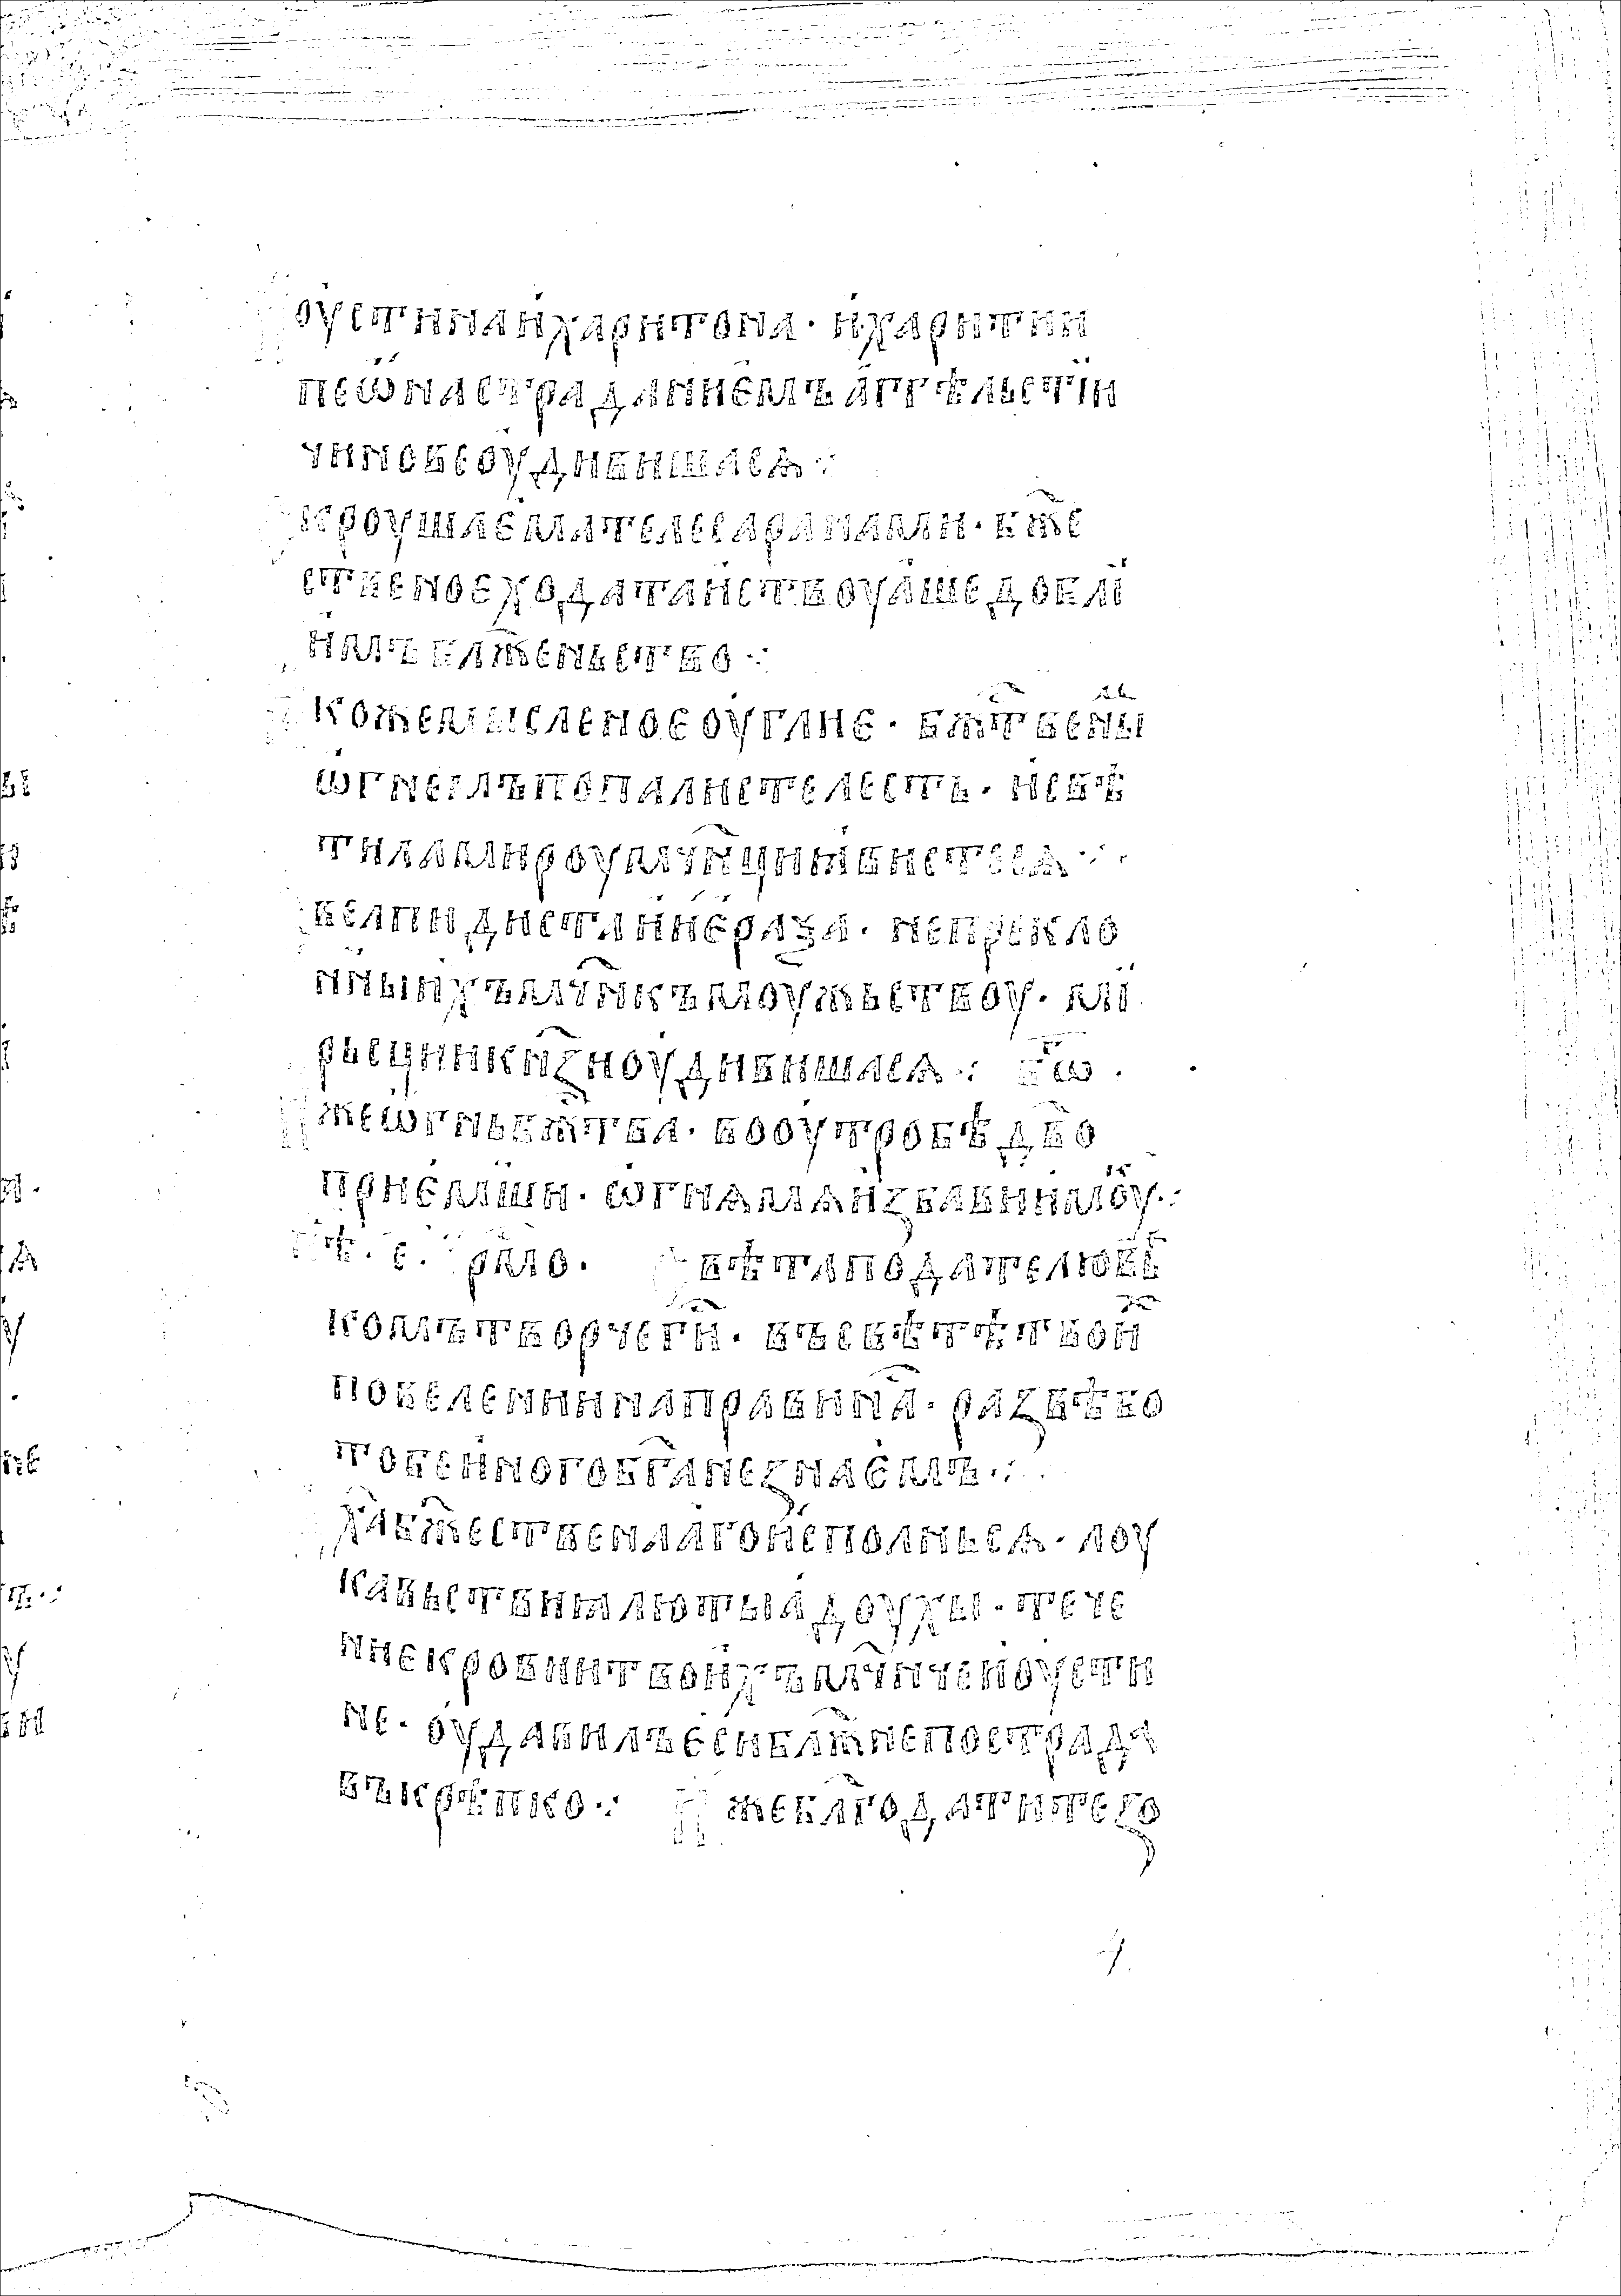 оустинаиꙗхаритона · ихаритии
пеѿнастраданиемъ аггѣльстіи
чиновеоудивишасѧ ⁘
крꙋшаематѣлесаранами · бж҃е
ственоеходатаиствоуаше добли
имъ блаженьство ⁘
Кожемысленоеоугліе · бж҃твены
ѡгнемъпопалистелесть · исвѣ
тиламироумч҃ициꙗвистесѧ ⁘
велпидистаинеобраза · непрекло
ньныихъмч҃икъмоужьствоу · мі
рьсциикнѧзиоудивишасѧ ⁘
жеѡгньбж҃тва · воутробѣ дв҃о
приемши · ѿгнѧмѧизбавиимоу ⁘
свѣтаподателювѣ
комътворче ги҃ · въсвѣтѣтвои
повелениинаправин҃а · развѣбо
тобеиногобг҃анезнаемъ ⁘
Х҃абж҃ественаагоисполньсѧ · лоу
кавьствиꙗлютыѧдоухы · тече
ниекровиитвоихъмч҃ничеиоусти
не · оудавилъесиблаженепострада
въкрѣпко ⁘ жеблагодатитезо